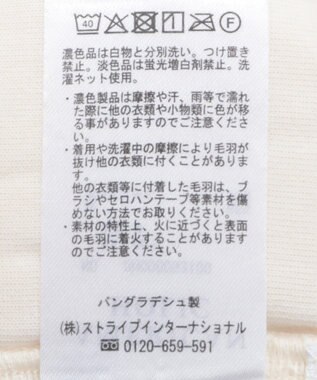 40 F
濃色品は白物と分別洗い。つけ置き
禁止。淡色品は蛍光増白剤禁止。洗
濯ネット使用。
・濃色製品は摩擦や汗、雨等で濡れ
た際に他の衣類や小物類に色が移
る事がありますのでご注意くださ
い。
・着用や洗濯中の摩擦により毛羽が
抜け他の衣類に付くことがありま
す。
他の衣類等に付着した毛羽は、ブ
ラシやセロハンテープ等素材を傷
めない方法でお取りください。
・素材の特性上、火に近づくと表面
の毛羽に着火することがあります
のでご注意ください。
バングラデシュ製
(株)ストライプインターナショナル
0120-659-591